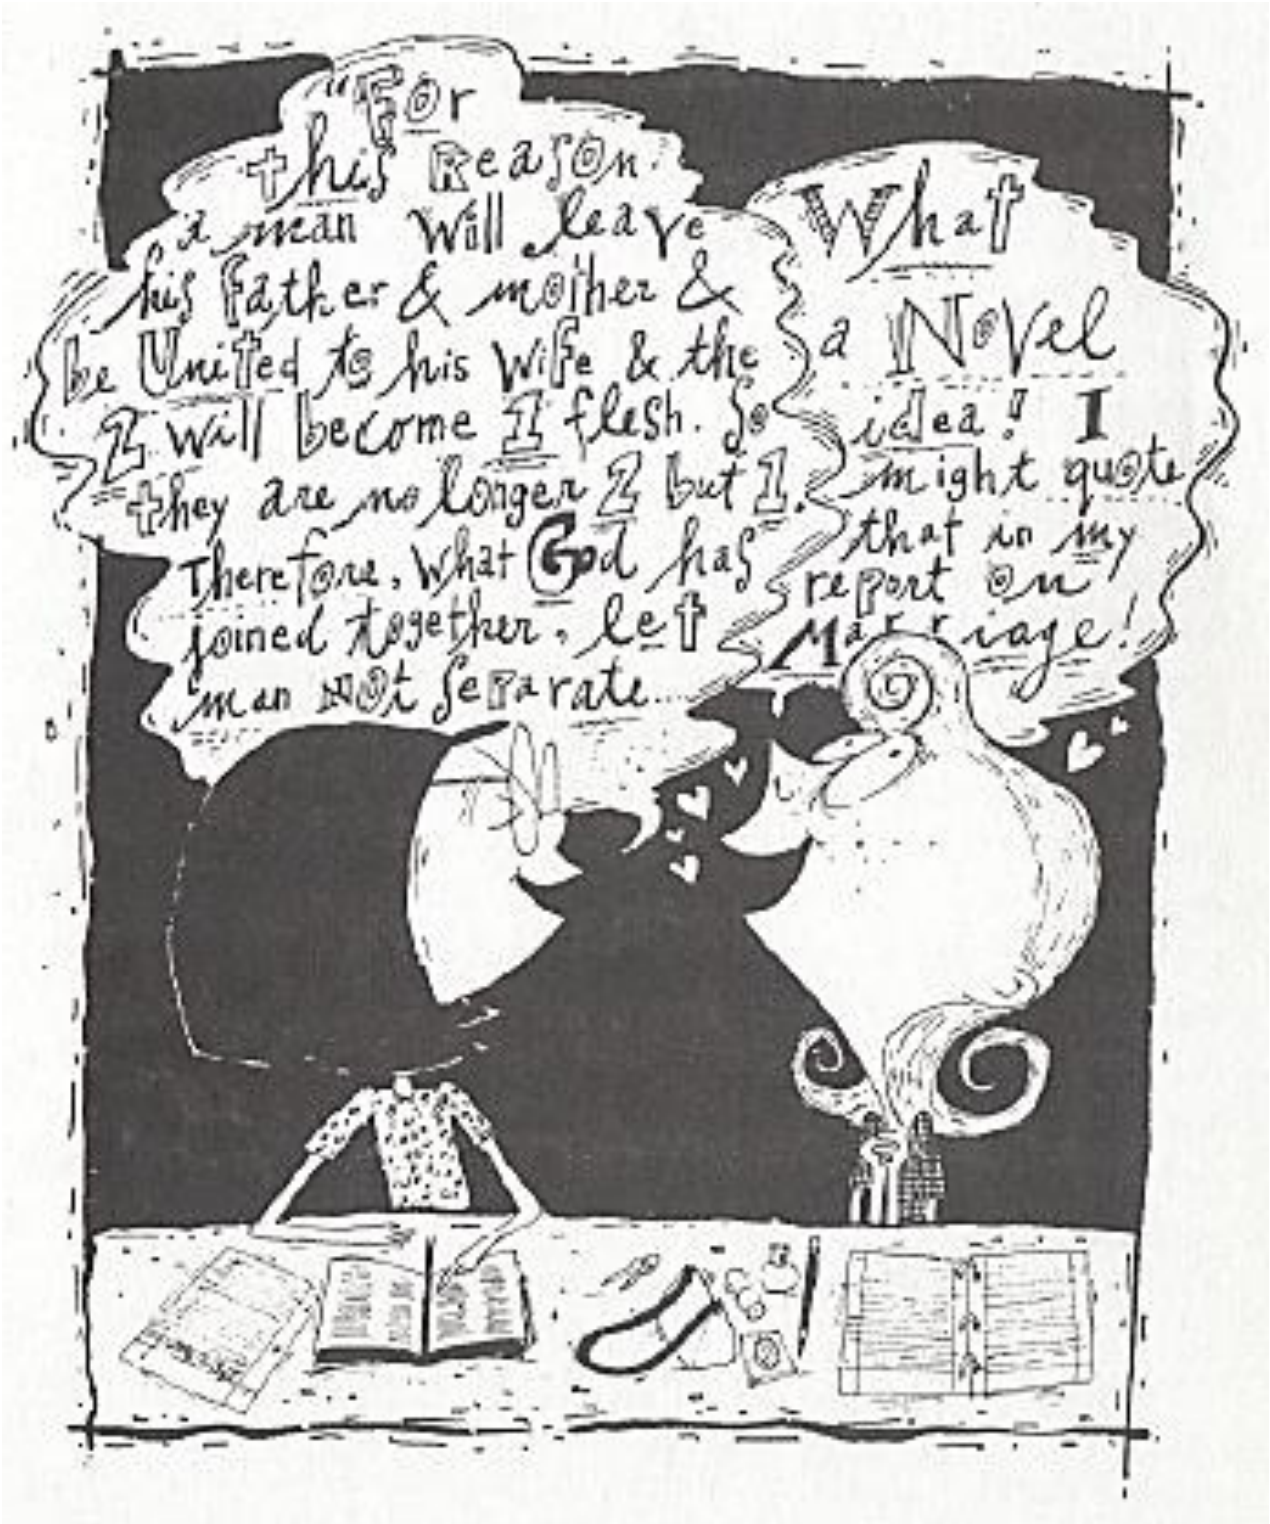 "For
this Reason
a man will leave
his Father & mother &
be United to his wife & the
2 will become 1 flesh. So
they are no longer 2 but 1.
Therefore, what God has
joined together, let
man NOt Separate...
What
a Novel
idea! I
might quote
that in my
report on
Marriage!